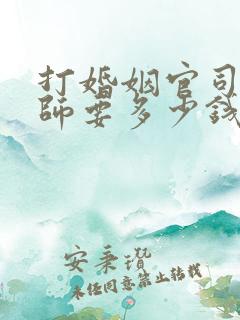 打婚姻官司
师要多少钱
安秉𤩽
未经同意禁止转载